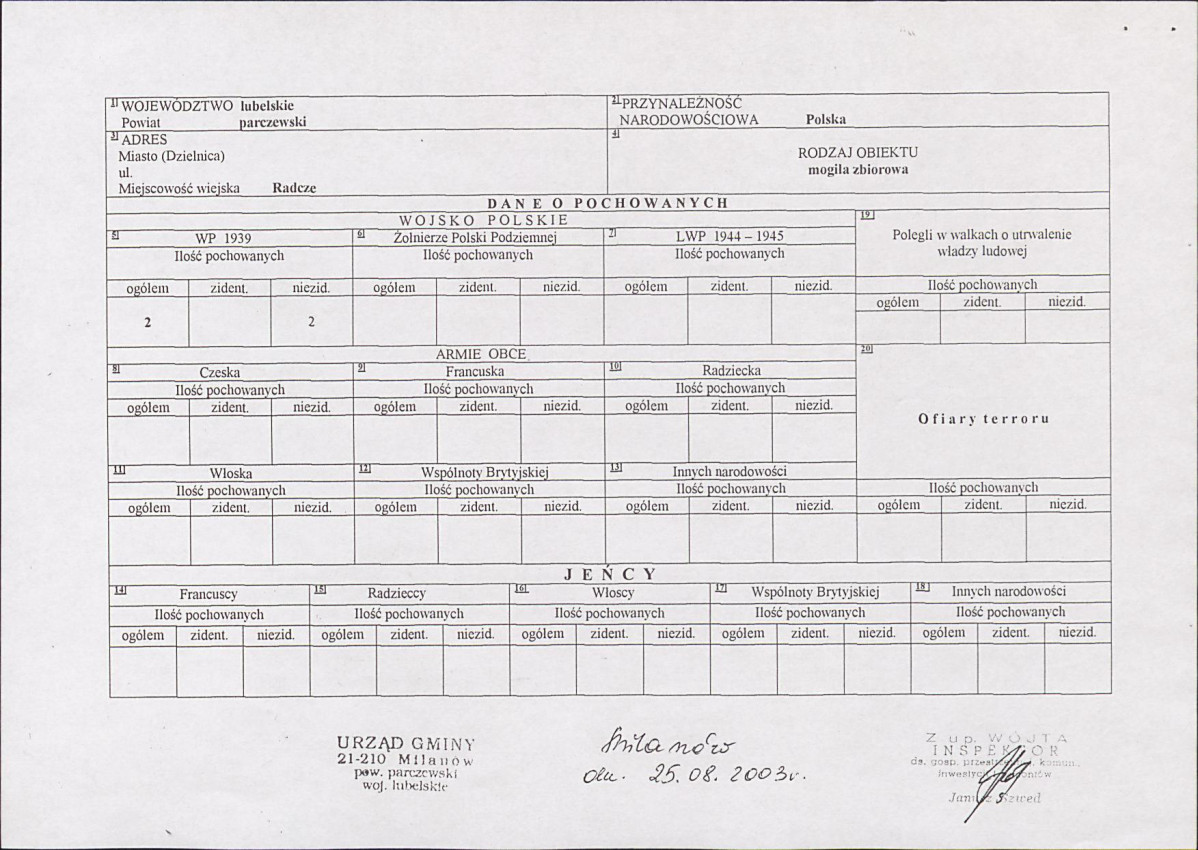 1] WOJEWÓDZTWO lubelskie
Powiat parczewski
2] PRZYNALEŻNOŚĆ
NARODOWOŚCIOWA Polska
3] ADRES
Miasto (Dzielnica)
ul.
Miejscowość wiejska Radcze
4]
RODZAJ OBIEKTU
mogiła zbiorowa
DANE O POCHOWANYCH
WOJSKO POLSKIE
5] WP 1939
6] Żołnierze Polski Podziemnej
7] LWP 1944 – 1945
19]
Polegli w walkach o utrwalenie
władzy ludowej
Ilość pochowanych Ilość pochowanych Ilość pochowanych
Ilość pochowanych
ogółem zident. niezid. ogółem zident. niezid. ogółem zident. niezid.
ogółem zident. niezid.
2 2
ARMIE OBCE
8] Czeska 9] Francuska 10] Radziecka
Ilość pochowanych Ilość pochowanych Ilość pochowanych
ogółem zident. niezid. ogółem zident. niezid. ogółem zident. niezid.
20]
Ofiary terroru
11] Włoska 12] Wspólnoty Brytyjskiej 13] Innych narodowości
Ilość pochowanych Ilość pochowanych Ilość pochowanych Ilość pochowanych
ogółem zident. niezid. ogółem zident. niezid. ogółem zident. niezid. ogółem zident. niezid.
JEŃCY
14] Francuscy 15] Radzieccy 16] Włoscy 17] Wspólnoty Brytyjskiej 18] Innych narodowości
Ilość pochowanych Ilość pochowanych Ilość pochowanych Ilość pochowanych Ilość pochowanych
ogółem zident. niezid. ogółem zident. niezid. ogółem zident. niezid. ogółem zident. niezid. ogółem zident. niezid.
URZĄD GMINY
21-210 Milanów
pow. parczewski
woj. lubelskie
Milanów
dn. 25.08.2003r.
Z up. WÓJTA
INSPEKTOR
ds. gosp. komun.,
Janusz Szwed